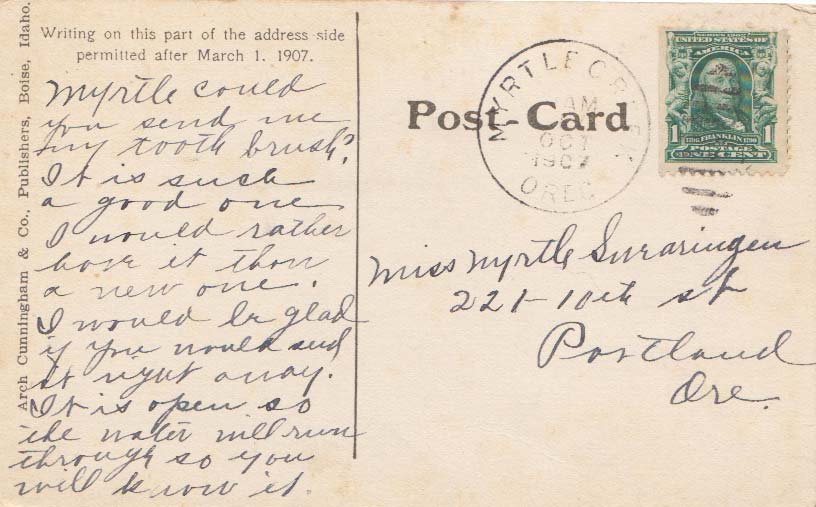 Arch Cunningham & Co., Publishers, Boise, Idaho.
Writing on this part of the address side
permitted after March 1. 1907.
Myrtle could
you send me
my tooth brush?
It is such
a good one
I would rather
have it than
a new one.
I would be glad
if you would send
it right away.
It is open so
the water will run
through so you
will know it.
Post-Card
MYRTLE CREEK
AM
OCT
1907
OREG
SERIES 1902
UNITED STATES OF
AMERICA
1 1706 FRANKLIN 1790 1
POSTAGE
ONE CENT
Miss Myrtle Swearingen
221-10th st
Portland
Ore.